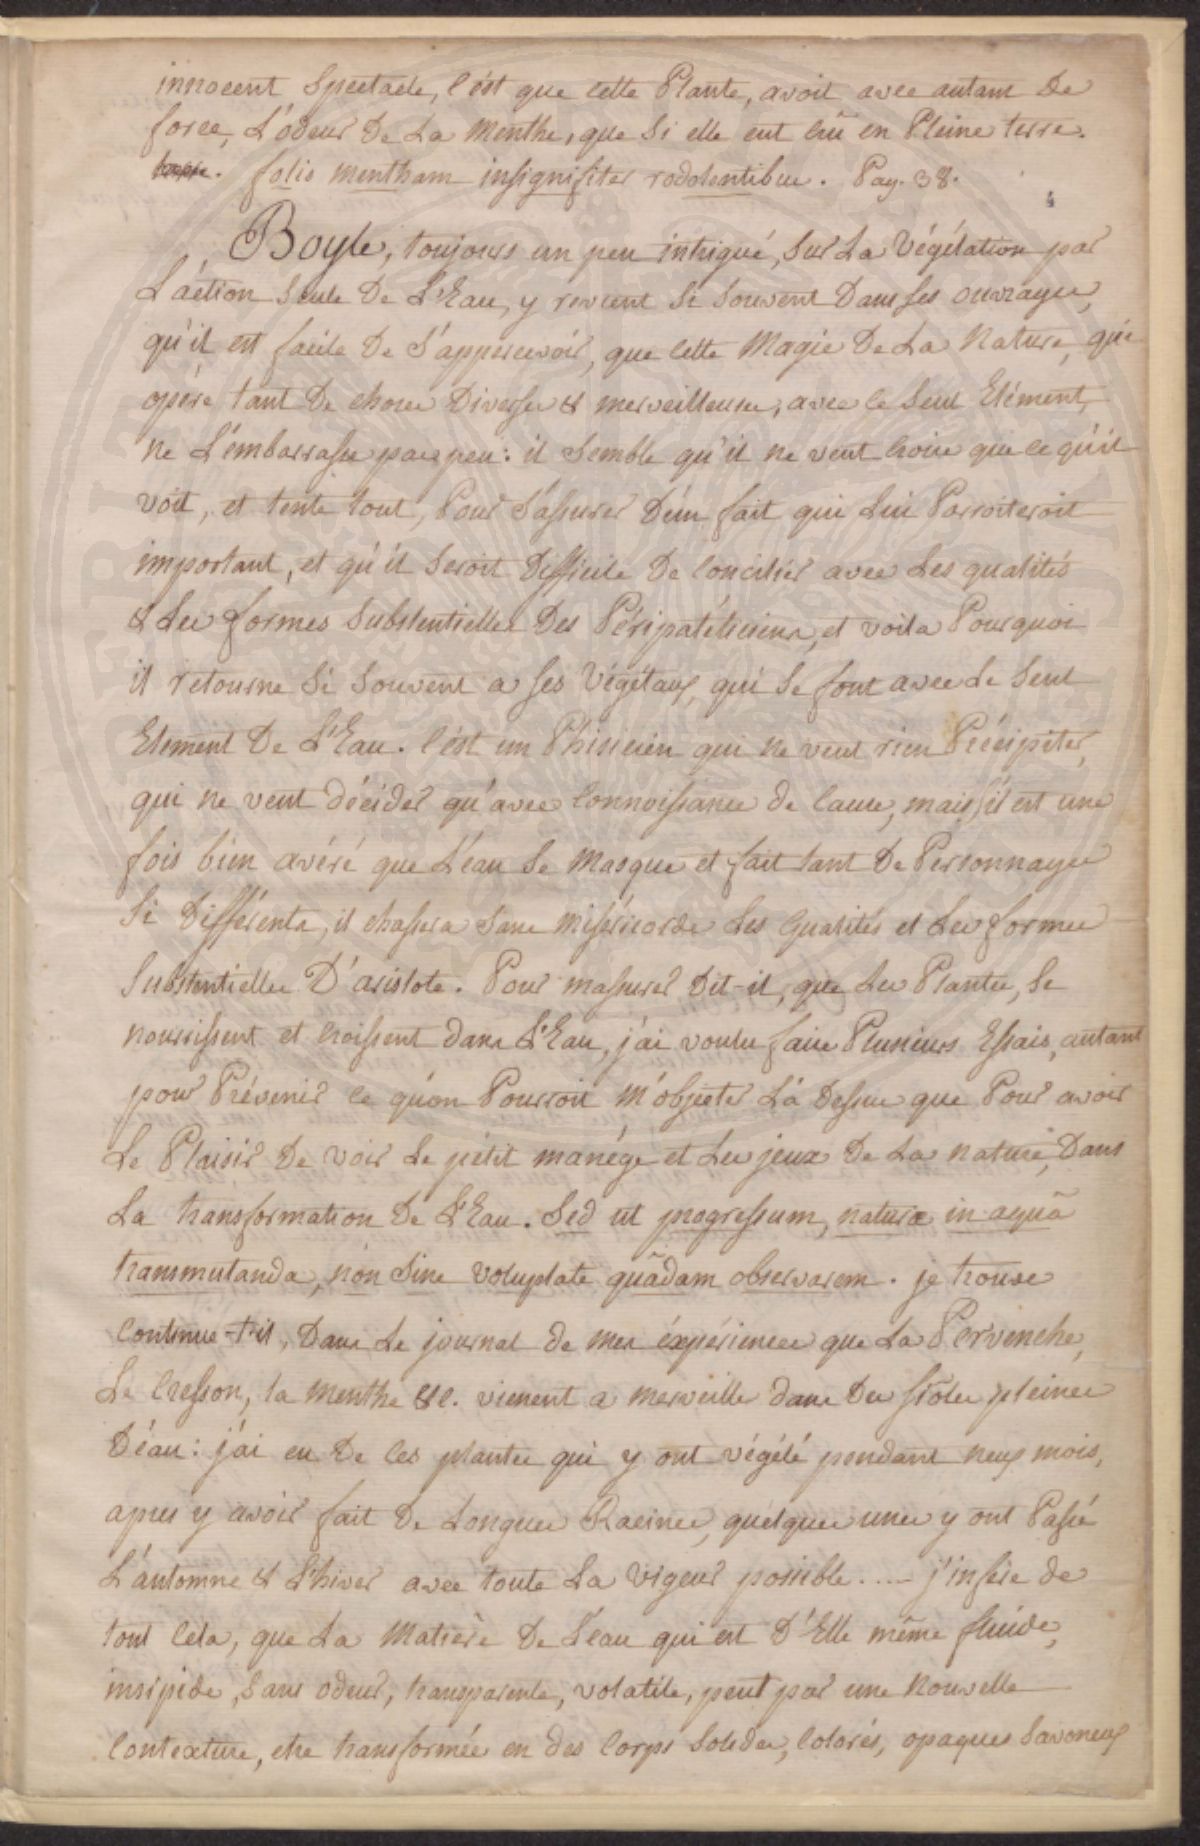 innocent Spectacle, c'ést que cette Plante, avoit avec autant De
force, L'odeur De La Menthe, que Si elle eut crû en Pleine terre.
folis mentham insignifiter redolentibus. Pag. 38.
Boyle, toujours un peu intrigué, Sur La Végétation par
L'action Seule De L'Eau, y revient Si Souvent Dans Ses ouvrages,
qu'il est facile De S'appercevoir, que cette Magie De La Nature, qui
opére tant De choses Diverses & merveilleuses, avec ce Seul Elément,
ne L'embarrasse pas peu: il Semble qu'il ne veut croire que ce qu'il
voit, et tente tout, Pour S'assurer D'un fait qui Lui Parroiteroit
important, et qu'il Seroit Difficile De Concilier avec Les qualités
& Les formes Substentielles Des Péripatéticiens, et voila Pourquoi
il retourne Si Souvent a Ses Végétaux, qui Se font avec Le Seul
Element De L'Eau. C'ést un Phisicien qui ne veut rien Précipiter,
qui ne veut décider qu'avec Connoissance de Cause, mais s'il est une
fois bien avéré que L'éau Se Masque et fait tant De Personnages
Si Différents, il chassera Sans Miséricorde Les Qualités et Les formes
Substentielles D'aristote. Pour m'assurer Dit-il, que Les Plantes, Se
nourrissent et Croissent dans L'Eau, j'ai voulu faire Plusieurs Essais, autant
pour Prévenir ce qu'on Pourroit M'objecter Là Dessus que Pour avoir
Le Plaisir De voir Le pétit manége et Les jeux De La nature, Dans
La transformation De L'Eau. Sed ut progressum, naturæ in aquâ
transmutanda, non Sine voluptate quâdam observarem. je trouve
Continue-t-il, Dans Le journal de mes éxpériences que La Pervenche,
Le Cresson, la Menthe &c. vienent a Merveille dans Des fioles pleines
D'éau: j'ai eu De ces plantes qui y ont végété pendant neuf mois,
apres y avoir fait De Longues Racines, quelques unes y ont Passé
L'automne & L'hiver avec toute La Vigeur possible .... j'infére de
tout Cela, que La Matière De L'eau qui est D'Elle même fluide,
insipide, Sans odeur, transparente, volatile, peut par une Nouvelle
Contexture, etre transformée en des Corps Solides, Colorés, opaques Savoneux